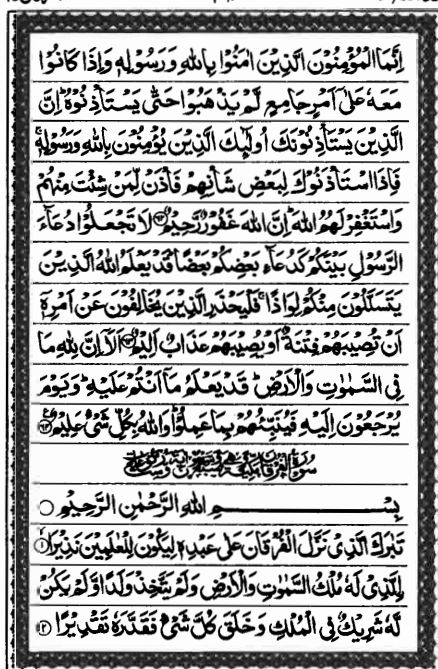 اِنَّمَا الْمُؤْمِنُوْنَ الَّذِيْنَ اٰمَنُوْا بِاللّٰهِ وَرَسُوْلِهٖ وَاِذَا كَانُوْا
مَعَهٗ عَلٰٓى اَمْرٍ جَامِعٍ لَّمْ يَذْهَبُوْا حَتّٰى يَسْتَاْذِنُوْهُ ؕ اِنَّ
الَّذِيْنَ يَسْتَاْذِنُوْنَكَ اُولٰٓئِكَ الَّذِيْنَ يُؤْمِنُوْنَ بِاللّٰهِ وَرَسُوْلِهٖ ۚ
فَاِذَا اسْتَاْذَنُوْكَ لِبَعْضِ شَاْنِهِمْ فَاْذَنْ لِّمَنْ شِئْتَ مِنْهُمْ
وَاسْتَغْفِرْ لَهُمُ اللّٰهَ ؕ اِنَّ اللّٰهَ غَفُوْرٌ رَّحِيْمٌ ﴿۶۲﴾ لَا تَجْعَلُوْا دُعَآءَ
الرَّسُوْلِ بَيْنَكُمْ كَدُعَآءِ بَعْضِكُمْ بَعْضًا ؕ قَدْ يَعْلَمُ اللّٰهُ الَّذِيْنَ
يَتَسَلَّلُوْنَ مِنْكُمْ لِوَاذًا ۚ فَلْيَحْذَرِ الَّذِيْنَ يُخَالِفُوْنَ عَنْ اَمْرِهٖٓ
اَنْ تُصِيْبَهُمْ فِتْنَةٌ اَوْ يُصِيْبَهُمْ عَذَابٌ اَلِيْمٌ ﴿۶۳﴾ اَلَاۤ اِنَّ لِلّٰهِ مَا
فِى السَّمٰوٰتِ وَالْاَرْضِ ؕ قَدْ يَعْلَمُ مَاۤ اَنْتُمْ عَلَيْهِ ؕ وَيَوْمَ
يُرْجَعُوْنَ اِلَيْهِ فَيُنَبِّئُهُمْ بِمَا عَمِلُوْا ؕ وَاللّٰهُ بِكُلِّ شَىْءٍ عَلِيْمٌ ﴿۶۴﴾
بِسْمِ اللّٰهِ الرَّحْمٰنِ الرَّحِيْمِ
تَبٰرَكَ الَّذِىْ نَزَّلَ الْفُرْقَانَ عَلٰى عَبْدِهٖ لِيَكُوْنَ لِلْعٰلَمِيْنَ نَذِيْرًا ﴿۱﴾
اِۨلَّذِىْ لَهٗ مُلْكُ السَّمٰوٰتِ وَالْاَرْضِ وَلَمْ يَتَّخِذْ وَلَدًا وَّلَمْ يَكُنْ
لَّهٗ شَرِيْكٌ فِى الْمُلْكِ وَخَلَقَ كُلَّ شَىْءٍ فَقَدَّرَهٗ تَقْدِيْرًا ﴿۲﴾